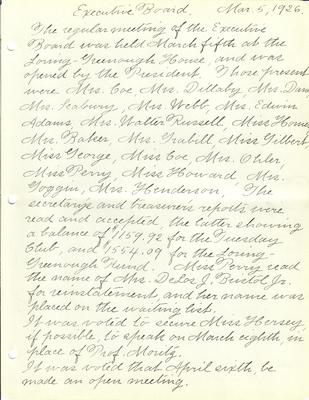 Executive Board, Mar. 5, 1926.
The regular meeting of the Executive
Board was held March fifth at the
Loring-Greenough House, and was
opened by the President. Those present
were Mrs. Coe, Mrs. Dillaby, Mrs. Dam,
Mrs. Seabury, Mrs. Webb, Mrs. Edwin
Adams, Mrs. Walter Russell, Miss
Mrs. Baker, Mrs. Trabill, Miss Gilbert,
Miss George, Miss Coe, Mrs. Ohler,
Miss Perry, Miss Howard Mrs.
Goggin, Mrs. Henderson, The
secretarys and treasurers reports were
read and accepted, the latter showing
a balance of $1159.92 for the Tuesday
Club, and $554.09 for the Loring-
Greenough Fund. Miss Perry read
the name of Mrs. DeLos J. Bristol, Jr.
for reinstatement, and her name was
placed on the waiting list.
It was voted to secure Miss Hersey,
if possible, to speak on March eighth, in
place of Prof. Moritz.
It was voted that April sixth, be
made an open meeting.